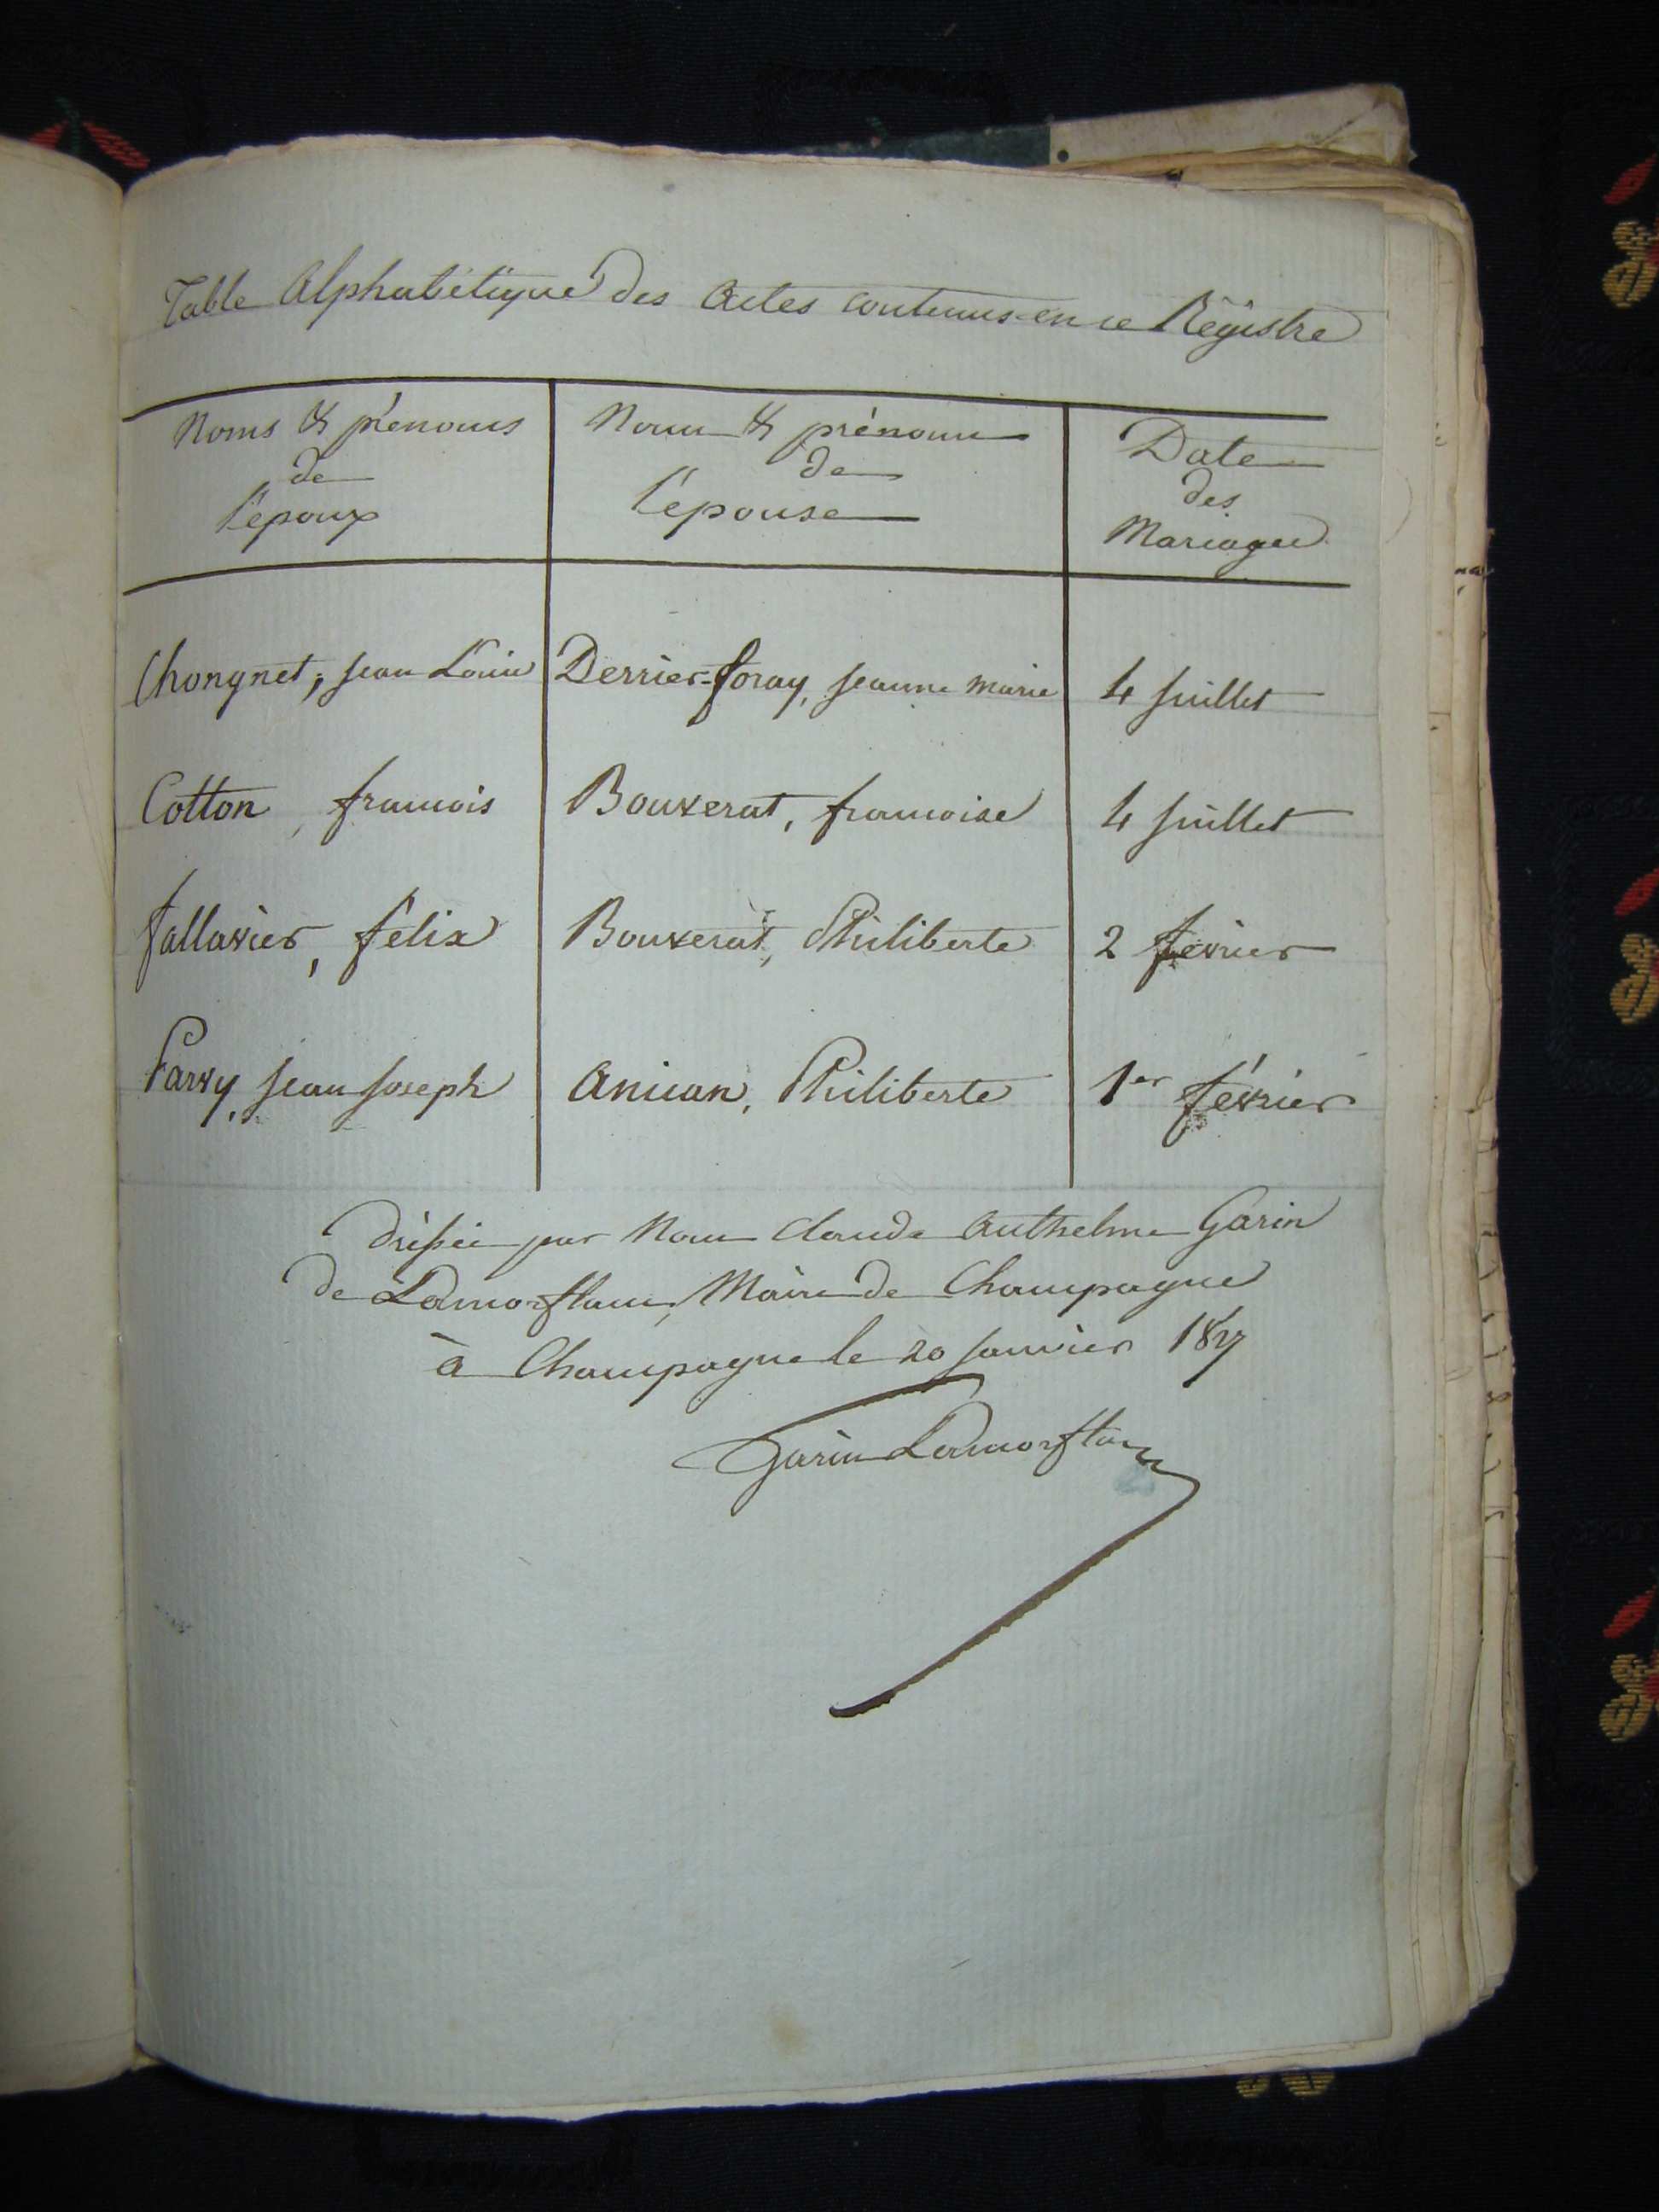 Table Alphabétique des Actes contenus en ce Régistre
Noms & prénoms de l'époux
Noms & prénoms de l'épouse
Date des Mariages
Chongnet, Jean Louis Derrier-foray, Jeanne Marie 4 Juillet
Cotton, francois Bouverat, francoise 4 Juillet
fallavier, félix Bouverat, Philiberte 2 février
Parvy, Jean Joseph Anican, Philiberte 1er février
dréssée par Nous Claude Anthelme Garin
de Lamorflanc, Maire de Champagne
à Champagne le 20 Janvier 1827
Garin Lamorflanc